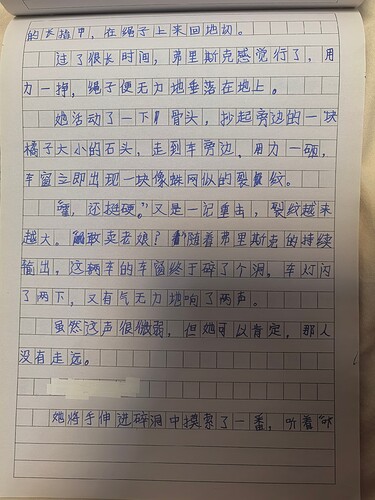 的长指甲，在绳子上来回地切。
过了很长时间，弗里斯克感觉行了，用
力一挣，绳子便无力地垂落在地上。
她活动了一下骨头，抄起旁边的一块
橘子大小的石头，走到车旁边，用力一砸，
车窗立即出现一块像蛛网似的裂纹。
“嘿，还挺硬。”又是一记重击，裂纹越来
越大。敢卖老娘？”随着弗里斯克的持续
输出，这辆车的车窗终于碎了个洞。车灯闪
了两下，又有气无力地响了两声。
虽然这声很微弱，但她可以肯定，那人
没有走远。
她将手伸进碎洞中摸索了一番，听着“咔